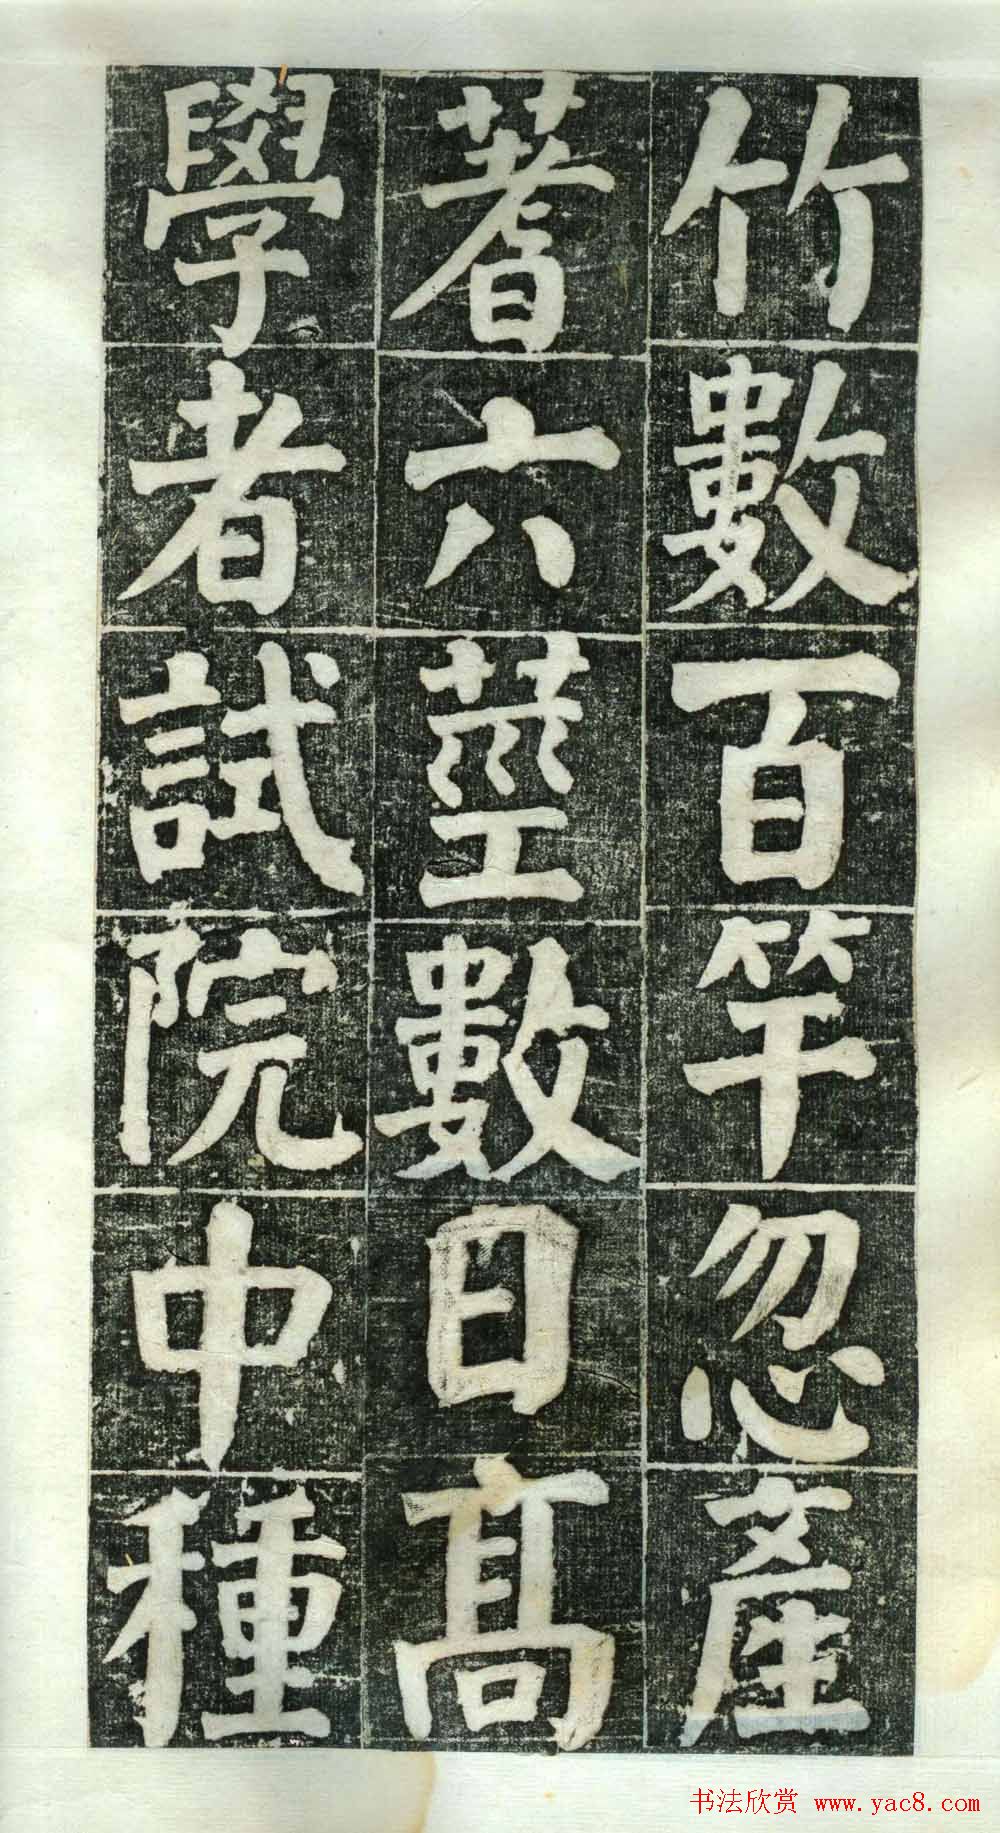 竹數百竿忽產
蓍六莖數日高
學者試院中種
书法欣赏 www.yac8.com